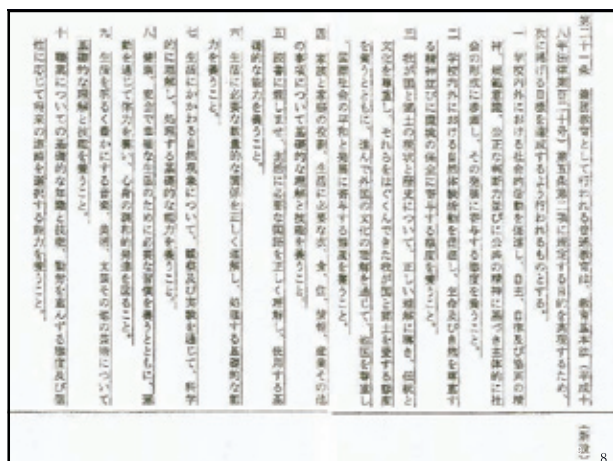 第二十一条　義務教育として行われる普通教育は、教育基本法（平成十
八年法律第百二十号）第五条第二項に規定する目的を実現するため、
次に掲げる目標を達成するよう行われるものとする。
一　学校内外における社会的活動を促進し、自主、自律及び協同の精
神、規範意識、公正な判断力並びに公共の精神に基づき主体的に社
会の形成に参画し、その発展に寄与する態度を養うこと。
二　学校内外における自然体験活動を促進し、生命及び自然を尊重す
る精神並びに環境の保全に寄与する態度を養うこと。
三　我が国と郷土の現状と歴史について、正しい理解に導き、伝統と
文化を尊重し、それらをはぐくんできた我が国と郷土を愛する態度
を養うとともに、進んで外国の文化の理解を通じて、他国を尊重し、
国際社会の平和と発展に寄与する態度を養うこと。
四　家族と家庭の役割、生活に必要な衣、食、住、情報、産業その他
の事項について基礎的な理解と技能を養うこと。
五　読書に親しませ、生活に必要な国語を正しく理解し、使用する基
礎的な能力を養うこと。
六　生活に必要な数量的な関係を正しく理解し、処理する基礎的な能
力を養うこと。
七　生活にかかわる自然現象について、観察及び実験を通じて、科学
的に理解し、処理する基礎的な能力を養うこと。
八　健康、安全で幸福な生活のために必要な習慣を養うとともに、運
動を通じて体力を養い、心身の調和的発達を図ること。
九　生活を明るく豊かにする音楽、美術、文芸その他の芸術について
基礎的な理解と技能を養うこと。
十　職業についての基礎的な知識と技能、勤労を重んずる態度及び個
性に応じて将来の進路を選択する能力を養うこと。
（新設）
8